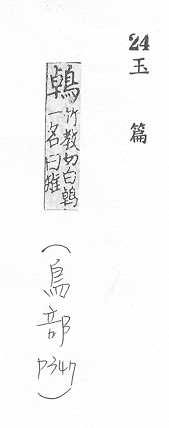 24
玉篇
鵫竹教切白鵫
一名曰雉
(鳥部
P347)